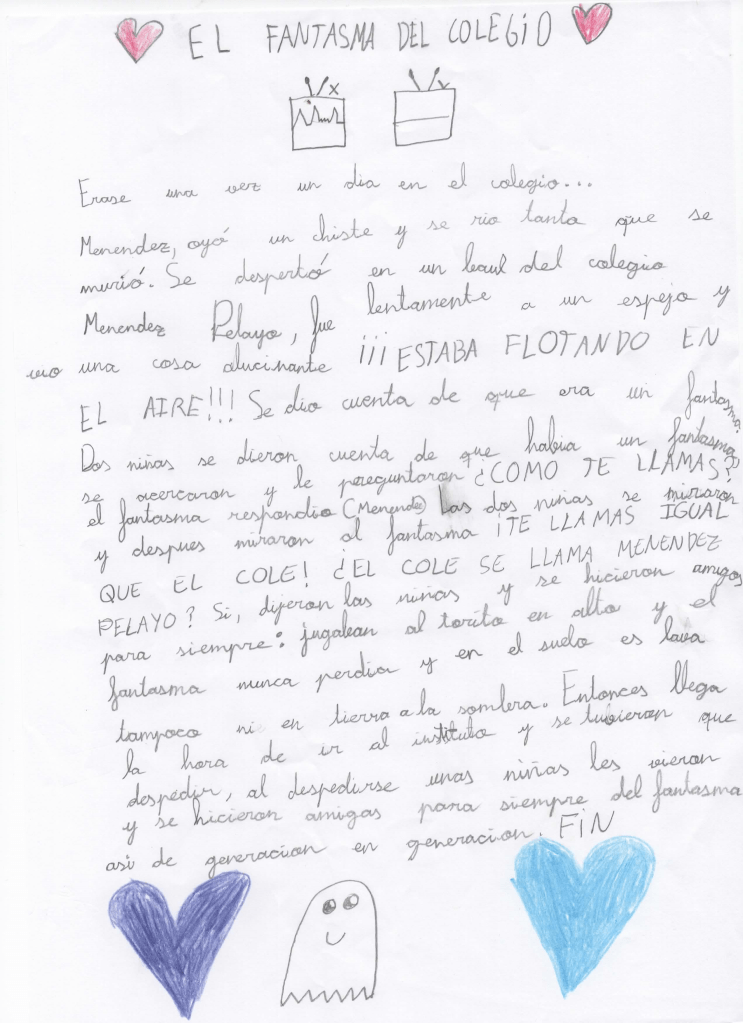 EL FANTASMA DEL COLEGIO
Erase una vez un dia en el colegio...
Menendez, oyó un chiste y se rio tanto que se
murió. Se despertó en un baul del colegio
Menendez Pelayo, fue lentamente a un espejo y
vio una cosa alucinante ¡¡¡ESTABA FLOTANDO EN
EL AIRE!!! Se dio cuenta de que era un fantasma.
Dos niñas se dieron cuenta de que habia un fantasma
se acercaron y le preguntaron ¿COMO TE LLAMAS?
el fantasma respondio (Menendez) Las dos niñas se miraron
y despues miraron al fantasma ¡TE LLAMAS IGUAL
QUE EL COLE! ¿EL COLE SE LLAMA MENENDEZ
PELAYO? Si, dijeron las niñas y se hicieron amigos
para siempre: jugaban al torito en alto y el
fantasma nunca perdia y en el suelo es lava
tampoco ni en tierra a la sombra. Entonces llega
la hora de ir al instituto y se tubieron que
despedir, al despedirse unas niñas les vieron
y se hicieron amigas para siempre del fantasma
asi de generacion en generacion. FiN